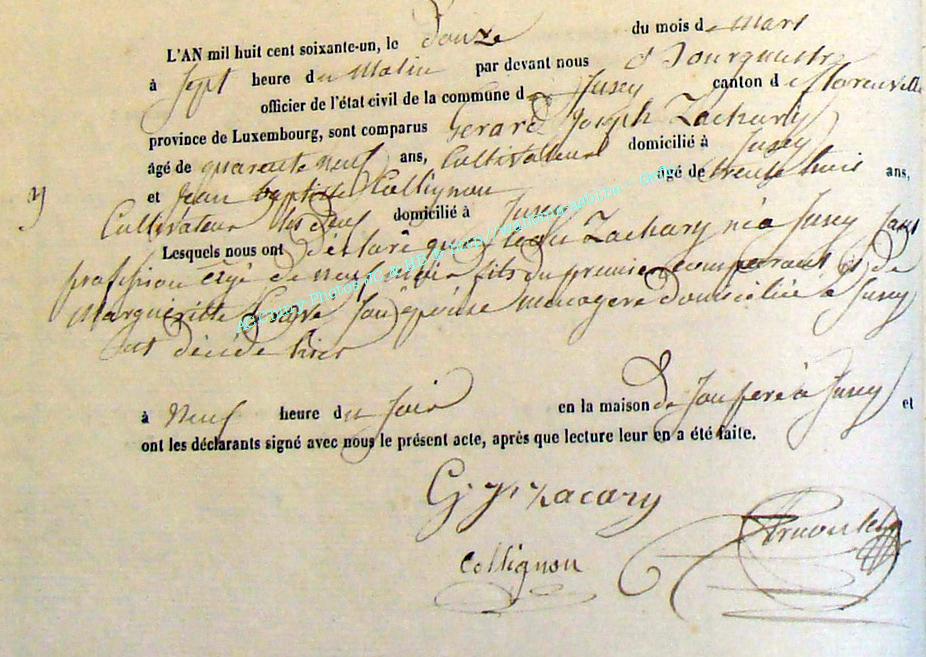 L'AN mil huit cent soixante-un, le Douze du mois de Mars
à Sept heure du Matin par devant nous
officier de l'état civil de la commune de Jusey canton de florenville
province de Luxembourg, sont comparus Gerard Joseph Zachary
âgé de quarente neuf ans, Cultivateur domicilié à Jusey
et Jean baptiste Collignon âgé de trente huit ans,
y
Cultivateur domicilié à Jusey
Lesquels nous ont déclaré que Zachary né a Jusey Sans
profession agé de neuf fils du premier comparant et de
Margueritte Son épouse menagere domiciliée a Jusey
est décédé hier
à Neuf heure du Soir en la maison de Son pere à Jusey et
ont les déclarants signé avec nous le présent acte, après que lecture leur en a été faite.
G J Zacary
Collignon